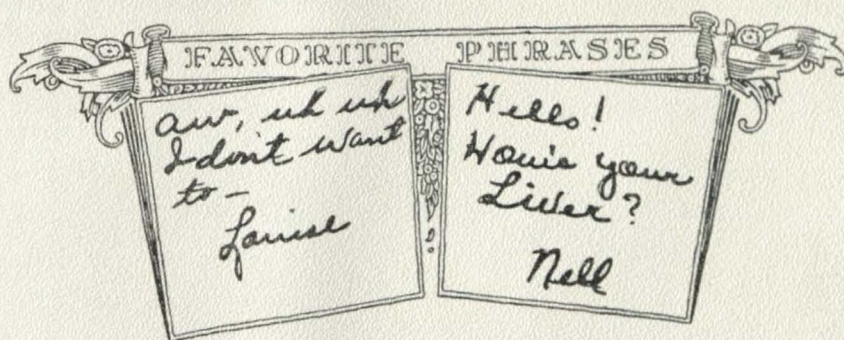 FAVORITE PHRASES
aw, uh uh
I don't want
to -
Louise
Hello!
How's your
Liver?
Nell